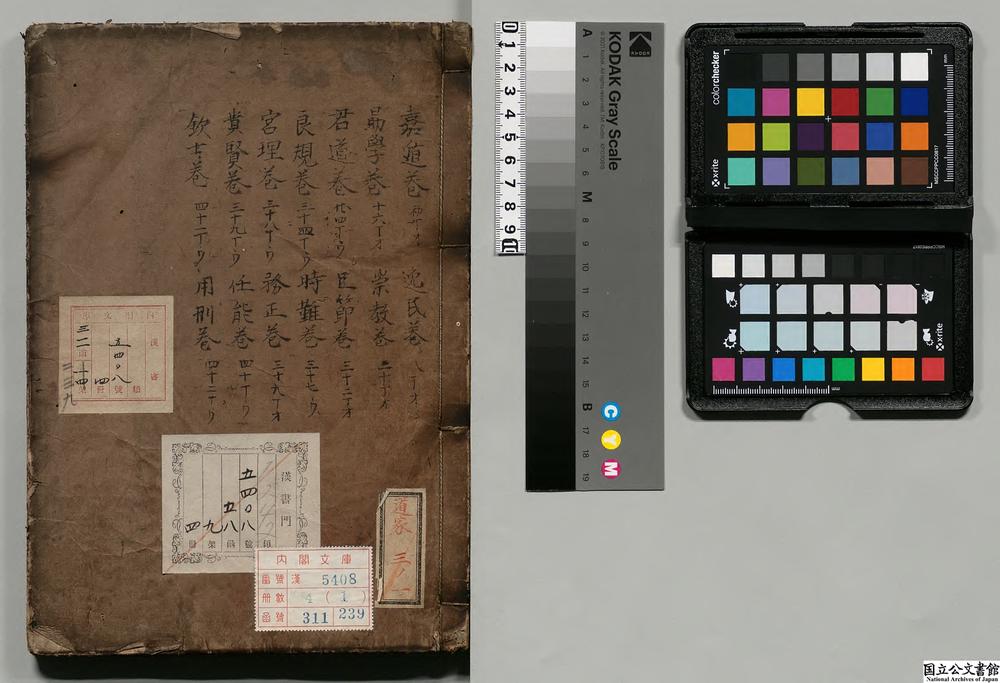 嘉遁巻 逸民巻 八丁オ
勗學巻 十六丁オ 崇教巻 二十丁オ
君道巻 廿四丁ウ 臣節巻 三十二丁オ
良規巻 三十四丁ウ 時難巻 三十七丁ウ
官理巻 三十八丁ウ 務正巻 三十九丁オ
貴賢巻 三十九丁ウ 任能巻 四十丁ウ
欽士巻 用刑巻 四十二丁ウ
漢書
五四〇八
漢書門
五四〇八
五八
九
四
道家 三ノ一
内閣文庫
番號 漢 5408
册數 4 (1)
函號 311 239
0 1 2 3 4 5 6 7 8 9 10
KODAK Gray Scale
KODAK
A 1 2 3 4 5 6 M 8 9 10 11 12 13 14 15 B 17 18 19
C
Y
M
colorchecker
x·rite
mm
x·rite
mm
国立公文書館
National Archives of Japan